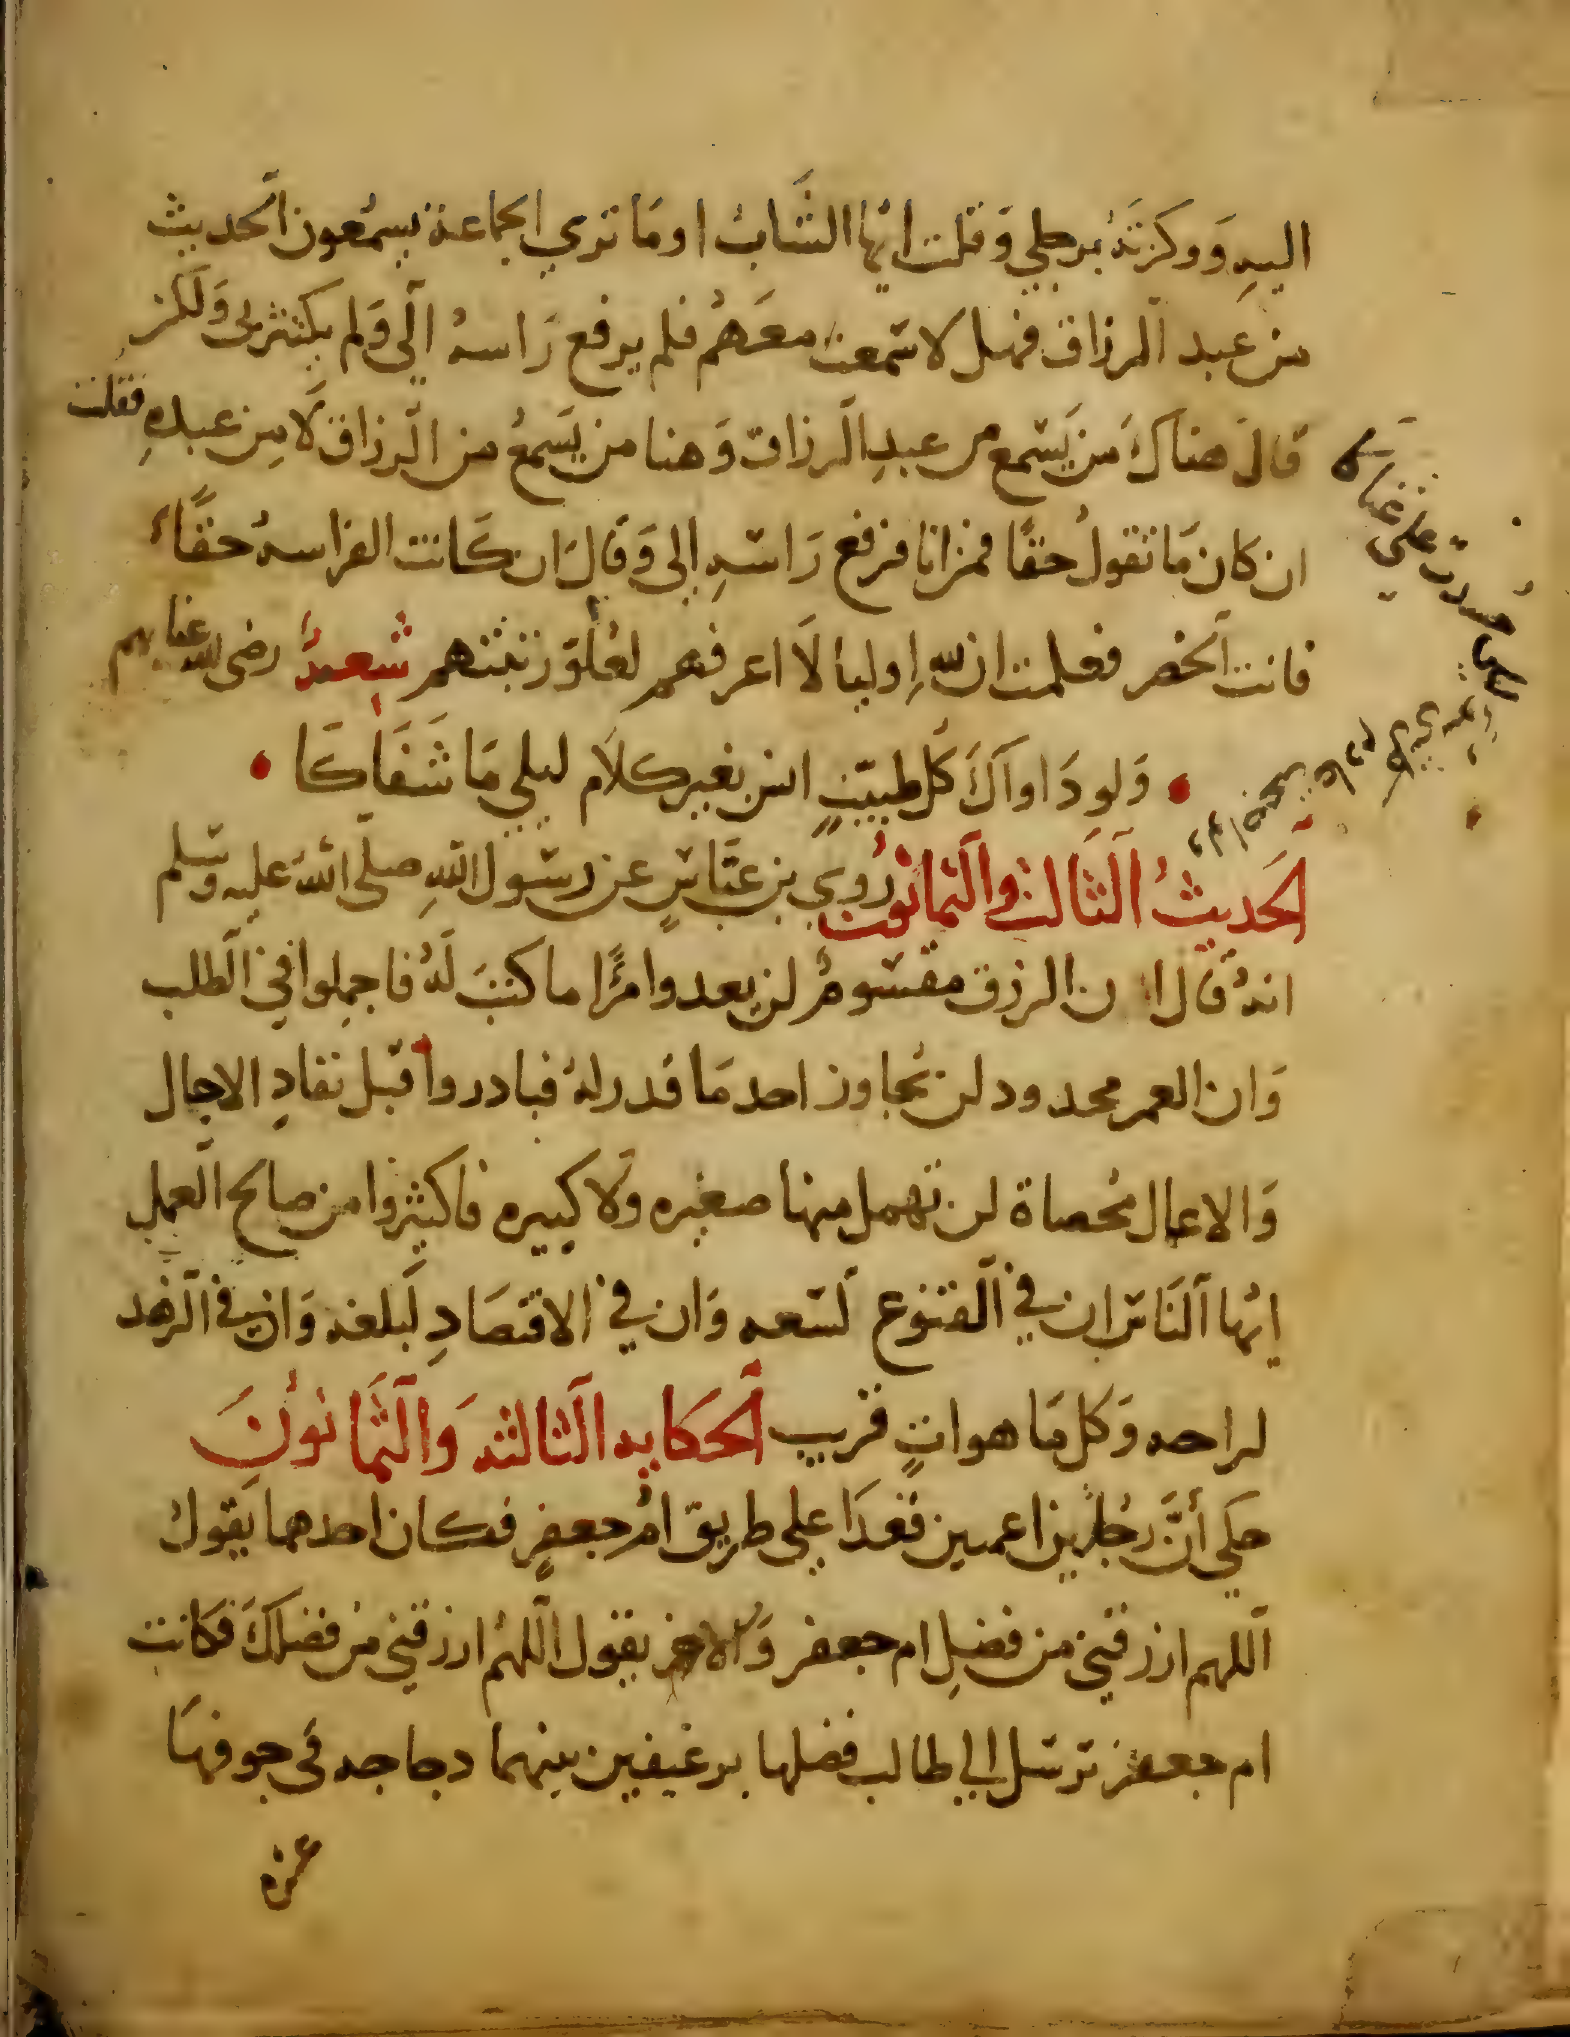 اليهِ وَوكزتَهُ برجلي وَقلت ايُّها الشَّابُ اومَا تري الجماعة يسمَعون الحديث
من عبد الرزاق فهل لا سَمعت معَهُم فلم يرفع رَاسهُ الَي وَلم يكترث بي وَلكن
قالَ هناكَ مَن يَسَمع من عبدِ الرزاق وَهنا من يَسَمعُ من الرزاق لَا مِن عبدهِ فقلت
ان كان مَا تقولُ حقًا فمن انا فرفع رَاسَهِ إلى وَقالَ ان كَانت الفراسهُ حقًا
فانت الخضر فعلمت ان للّٰه اوليا لَا اعرفهم لعُلوّ رتبتهم شعِرٌ رضى الله عنا بهم
وَلو دَاوَاكَ كُل طبيبٍ انس بغير كلَام ليلي مَا شَفَاكَا
الحَديثُ الثَالث والثمانُون رُوي بن عبَّاسٍ عن رسَول اللهِ صلّى اللهُ عليه وسَلم
انهُ قال ان الرزق مقسَومٌ لن يعدوا امرًا ما كتبَ لَهُ فاجمِلوا في الطلب
وَان العمر محدود لن يُجاوز احد مَا قدر لهُ فبادروا قبل نفادِ الاجال
وَالاعمال مُحصاة لن تهمل منها صغيره ولَا كبيره فاكثِروا من صالح العمل
ايُها النَاسَ ان في القنوع لسَعه وَان في الاقتصَادِ لَبلغه وَان في الزهد
لراحه وَكل مَا هو اتٍ قريب الحكايه الثالثه وَالثَمانُونَ
حكَي أنَّ رجُلين اعميين قعدَا علي طريق امُ جعفرٍ فكان احدهما يَقولُ
اللهم ارزقني من فضلِ ام جعفر وَالاخر يقول اللهُم ارزقني مَن فضلكَ فكانت
ام جعفر ترسَل الي طالب فضلها برغيفين بينهما دجاجه في جوفهَا